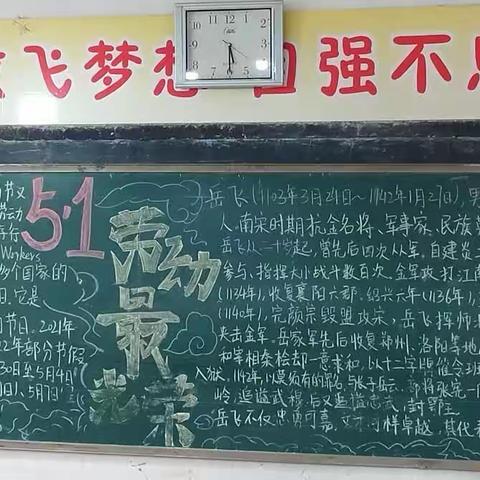 放飞梦想 自强不息
节又
劳动
行
Workers
多个国家的
日。它是
节日。2021年
22年部分节假
30日至5月4日
5.1
劳动
最
光荣
岳飞(1103年3月24日~1142年1月27日),男
人。南宋时期抗金名将、军事家、民族英
岳飞从二十岁起,曾先后四次从军。自建炎二
参与、指挥大小战斗数百次。金军攻打江南
(1134年),收复襄阳六郡。绍兴六年(1136年),
(1140年),完颜宗毁盟攻宋,岳飞挥师北
夹击金军。岳家军先后收复郑州、洛阳等地
和宰相秦桧却一意求和,以十二字牌催令班
入狱。1142年,以莫须有的罪名,与张子岳云、部将张宪一同
岭,追谥武穆,后又追谥忠武,封鄂王。
岳飞不仅忠勇可嘉,文才同样卓越,其代表